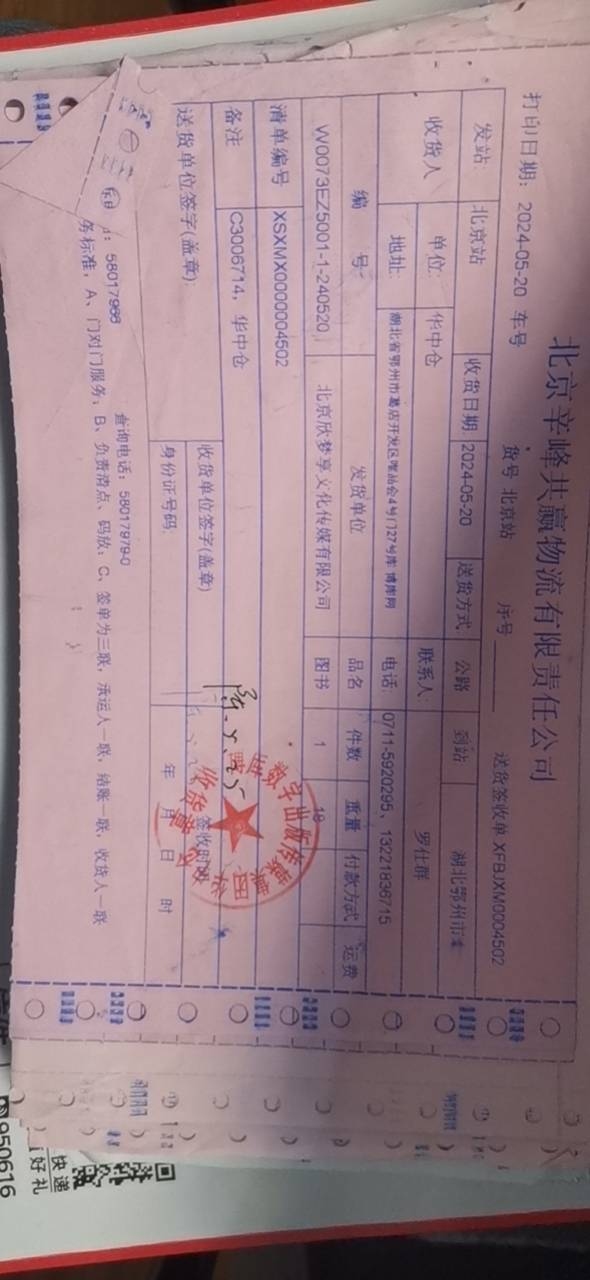 北京辛峰共赢物流有限责任公司
打印日期: 2024-05-20 车号 货号 北京站 序号 送货签收单 XFBJXM0004502
发站: 北京站 收货日期: 2024-05-20 送货方式 公路 到站 湖北鄂州市
收货人 单位: 华中仓 联系人: 罗仕群
地址: 湖北省鄂州市葛店开发区唯品会4号门27号库 博库网 电话: 0711-5920295、13221836715
编 号 发货单位 品名 件数 重量 付款方式 运费
W0073EZ5001-1-240520 北京欣梦享文化传媒有限公司 图书 1 18
清单编号 XSXMX0000004502
备注 C3006714, 华中仓
送货单位签字(盖章) 收货单位签字(盖章) 签收时间
身份证号码: 年 月 日 时
查询电话: 58017979-0
务标准: A、门对门服务; B、负责清点、码放; C、签单为三联, 承运人一联, 结账一联, 收货人一联
数字出版传媒集团
收货章
快递
好礼
950616